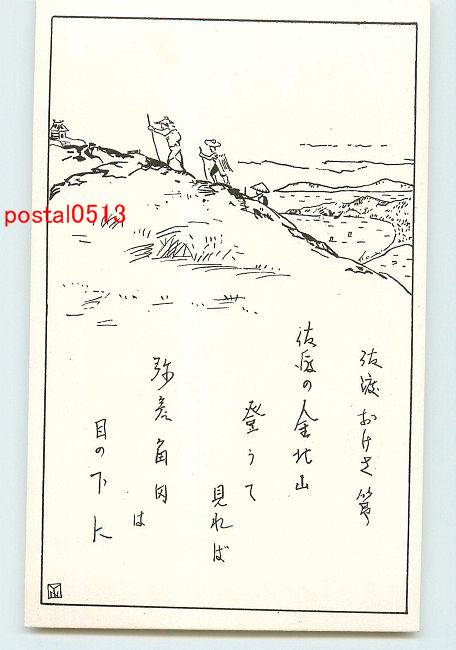 postal0513
佐渡おけさ節
佐渡の金北山
登つて
見れば
弥彦角田
は
目の下に